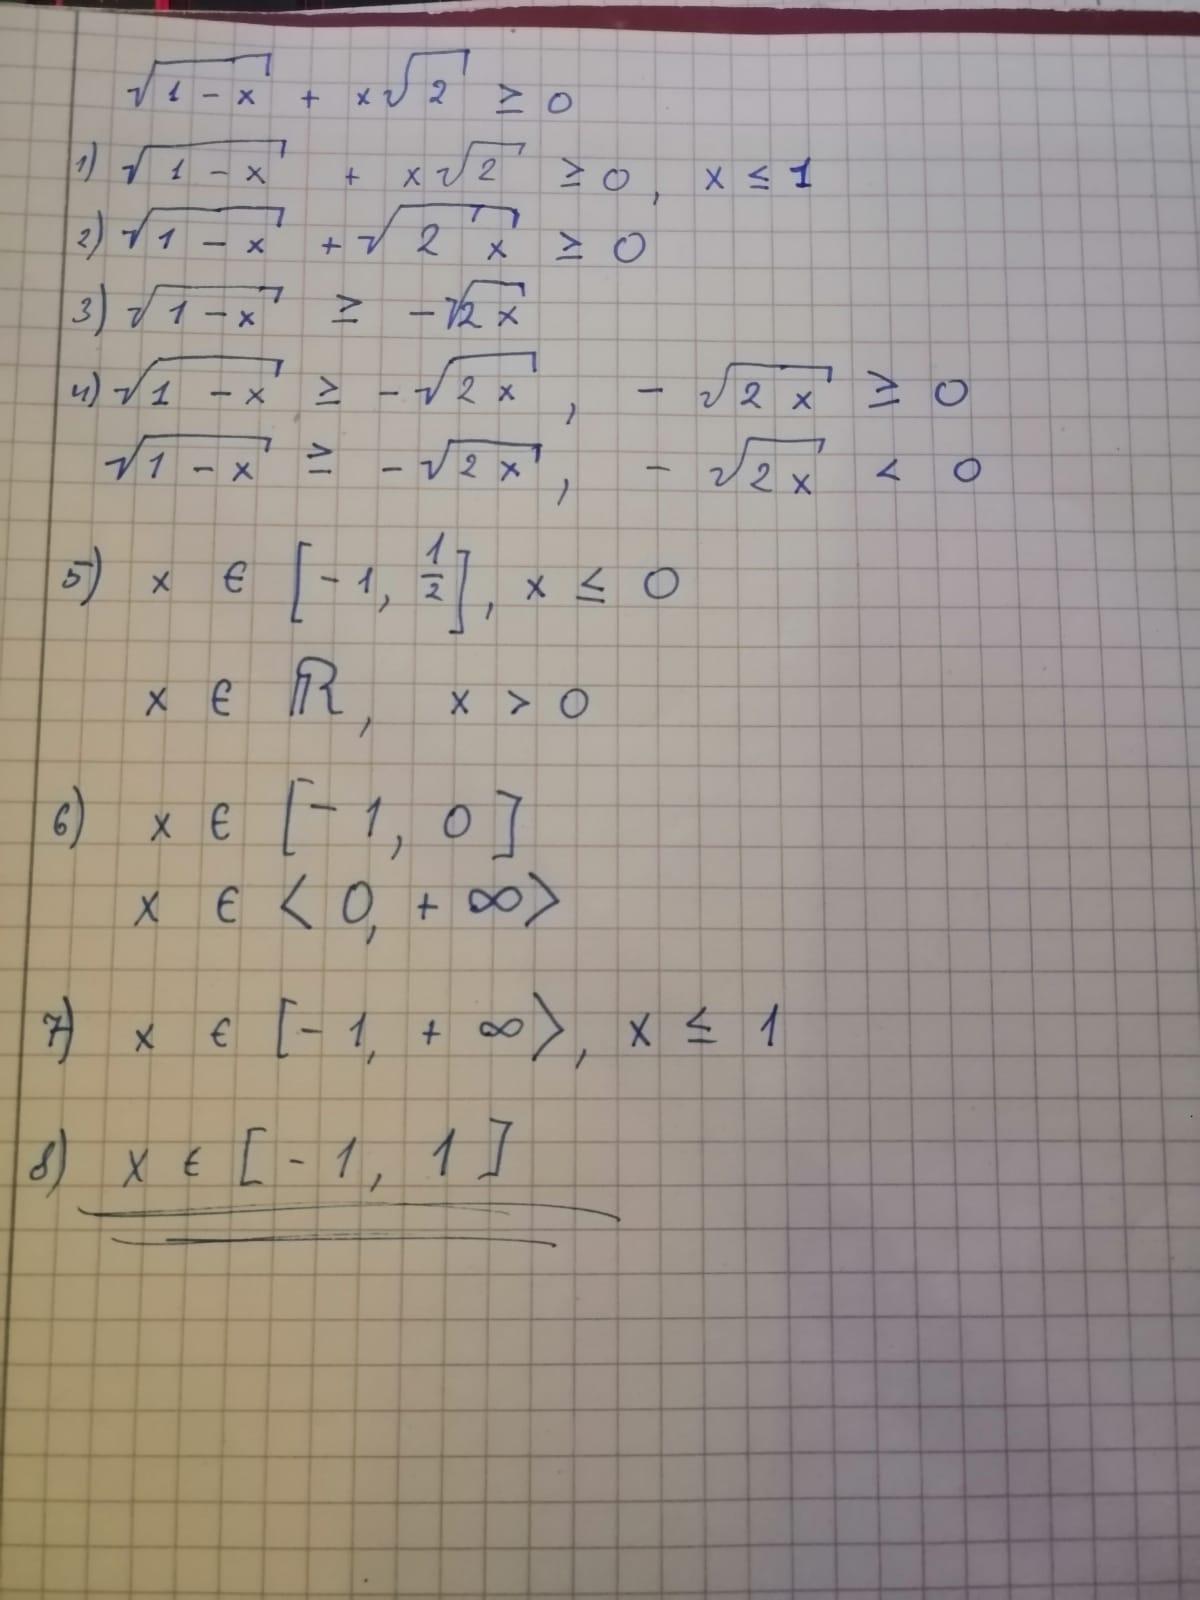 √(1 - x) + x√2 ≥ 0
1) √(1 - x) + x√2 ≥ 0, x ≤ 1
2) √(1 - x) + √(2 x) ≥ 0
3) √(1 - x) ≥ -√(2x)
4) √(1 - x) ≥ -√(2x), - √(2x) ≥ 0
√(1 - x) ≥ -√(2x), - √(2x) < 0
5) x ∈ [-1, 1/2], x ≤ 0
x ∈ ℝ, x > 0
6) x ∈ [-1, 0]
x ∈ <0, + ∞>
7) x ∈ [-1, + ∞>, x ≤ 1
8) x ∈ [-1, 1]